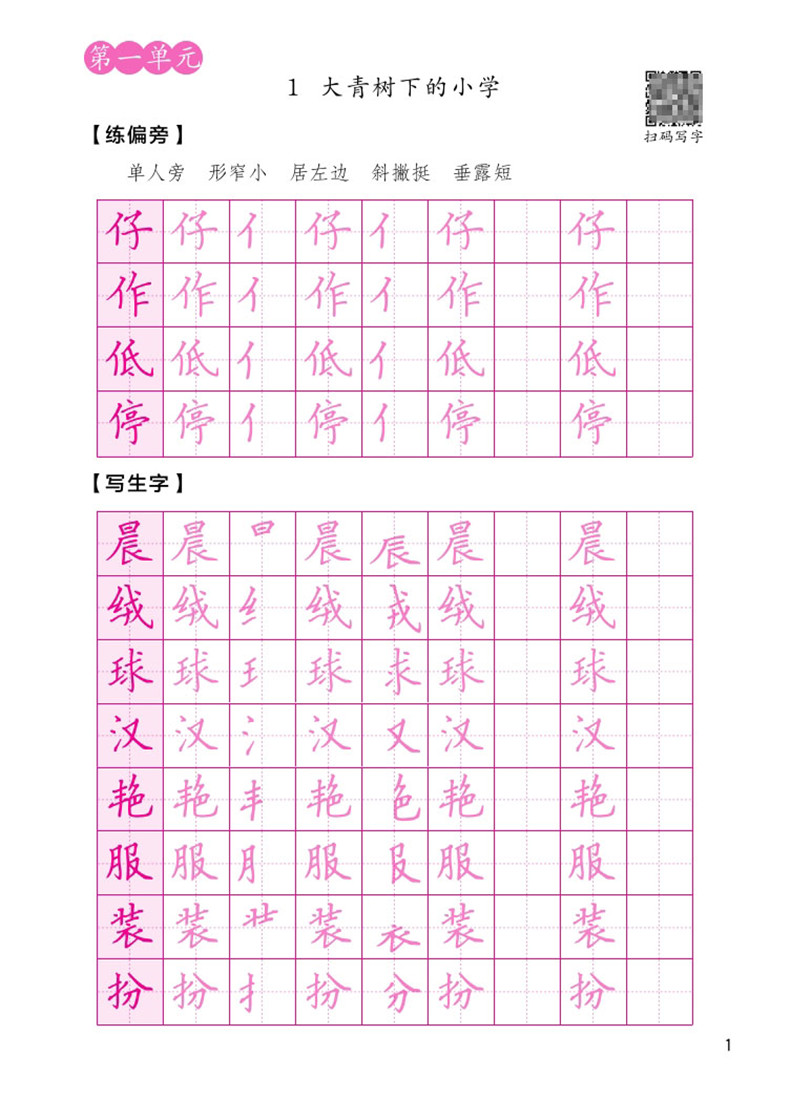 第一单元
1 大青树下的小学
扫码写字
【练偏旁】
单人旁 形窄小 居左边 斜撇挺 垂露短
仔 仔 亻 仔 亻 仔 仔
作 作 亻 作 亻 作 作
低 低 亻 低 亻 低 低
停 停 亻 停 亻 停 停
【写生字】
晨 晨 日 晨 辰 晨 晨
绒 绒 纟 绒 戎 绒 绒
球 球 王 球 求 球 球
汉 汉 氵 汉 又 汉 汉
艳 艳 丰 艳 色 艳 艳
服 服 月 服 𠬝 服 服
装 装 壮 装 衣 装 装
扮 扮 扌 扮 分 扮 扮
1